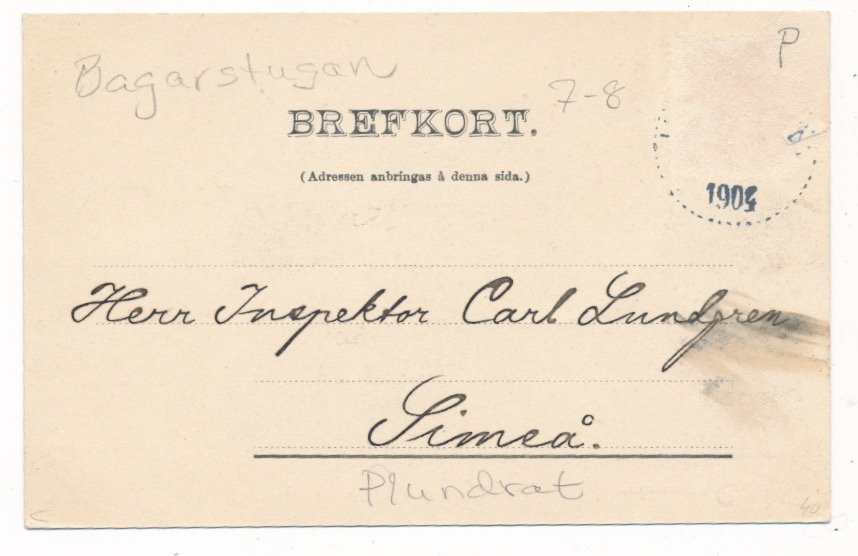 P
Bagarstugan
7-8
BREFKORT.
(Adressen anbringas å denna sida.)
1904
Herr Inspektor Carl Lundgren
Simeå.
Plundrat
40